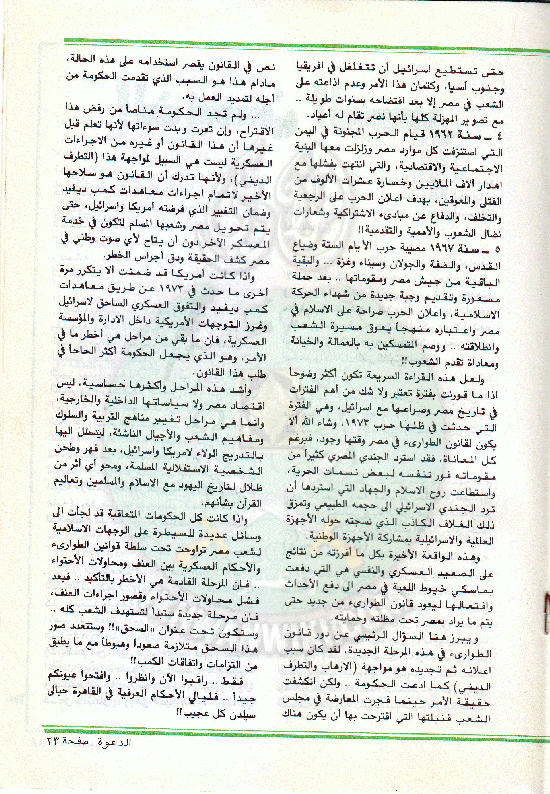 حتى تستطيع اسرائيل أن تتغلغل في افريقيا
وجنوب آسيا، وكتمان هذا الأمر وعدم اذاعته على
الشعب في مصر إلا بعد افتضاحه بسنوات طويلة ..
مع تصوير المهزلة كلها بأنها نصر تقام له أعياد.
٤ ــ سنة ١٩٦٢ قيام الحرب المجنونة في اليمن
التي استنزفت كل موارد مصر وزلزلت معها البنية
الاجتماعية والاقتصادية، والتي انتهت بفشلها مع
اهدار آلاف الملايين وخسارة عشرات الألوف من
القتلى والمعوقين، بهدف اعلان الحرب على الرجعية
والتخلف، والدفاع عن مبادىء الاشتراكية وشعارات
نضال الشعوب والأممية والتقدمية!!
٥ ــ سنة ١٩٦٧ مصيبة حرب الأيام الستة وضياع
القدس، والضفة والجولان وسيناء وغزة ... والبقية
الباقية من جيش مصر ومقوماتها .. بعد حملة
مسعورة وتقديم وجبة جديدة من شهداء الحركة
الاسلامية، واعلان الحرب صراحة على الاسلام في
مصر واعتباره منهجاً يعوق مسيرة الشعب
وانطلاقته .. ووصم المتمسكين به بالعمالة والخيانة
ومعاداة تقدم الشعوب!!
ولعل هذه القراءة السريعة تكون أكثر وضوحاً
اذا ما قورنت بفترة تعتبر ولا شك من أهم الفترات
في تاريخ مصر وصراعها مع اسرائيل، وهي الفترة
التي حدثت في ظلها حرب ١٩٧٣، وشاء الله ألا
يكون لقانون الطوارىء في مصر وقتها وجود، فبرغم
كل المعاناة، فقد استرد الجندي المصري كثيراً من
مقوماته فور تنفسه لبعض نسمات الحرية،
واستطاعت روح الاسلام والجهاد التي استردها أن
ترد الجندي الاسرائيلي الى حجمه الطبيعي وتمزق
ذلك الغلاف الكاذب الذي نسجته حوله الأجهزة
العالمية والاسرائيلية بمشاركة الأجهزة الوطنية.
وهذه الواقعة الأخيرة بكل ما أفرزته من نتائج
على الصعيد العسكري والنفسي هي التي دفعت
بماسكي خيوط اللعبة في مصر الى دفع الأحداث
وافتعالها ليعود قانون الطوارىء من جديد حتى
يتم ما يراد بمصر تحت مظلته وحمايته.
ويبرز هنا السؤال الرئيسي عن دور قانون
الطوارىء في هذه المرحلة الجديدة، لقد كان سبب
اعلانه ثم تجديده هو مواجهة (الارهاب والتطرف
الديني) كما ادعت الحكومة .. ولكن انكشفت
حقيقة الأمر حينما فجرت المعارضة في مجلس
الشعب قنبلتها التي اقترحت بها أن يكون هناك
نص في القانون يقصر استخدامه على هذه الحالة،
مادام هذا هو السبب الذي تقدمت الحكومة من
أجله لتمديد العمل به.
... ولم تجد الحكومة مناصاً من رفض هذا
الاقتراح، وإن تعرت وبدت سوءاتها لأنها تعلم قبل
غيرها أن هذا القانون أو غيره من الاجراءات
العسكرية ليست هي السبيل لمواجهة هذا (التطرف
الديني)، ولأنها تدرك أن القانون هو سلاحها
الأخير لاتمام اجراءات معاهدات كمب ديفيد
وضمان التغيير الذي فرضته أمريكا واسرائيل، حتى
يتم تحويل مصر وشعبها المسلم لتكون في خدمة
المعسكر الآخر دون أن يتاح لأي صوت وطني في
مصر كشف الحقيقة ودق أجراس الخطر.
واذا كانت أمريكا قد ضمنت ألا يتكرر مرة
أخرى ما حدث في ١٩٧٣ عن طريق معاهدات
كمب ديفيد والتفوق العسكري الساحق لاسرائيل
وغرز التوجهات الأمريكية داخل الادارة والمؤسسة
العسكرية، فان ما بقي من مراحل هي أخطر ما في
الأمر، وهو الذي يجعل الحكومة أكثر الحاحاً في
طلب هذا القانون.
وأشد هذه المراحل وأكثرها حساسية، ليس
اقتصاد مصر ولا سياساتها الداخلية والخارجية،
وانما هي مراحل تغيير مناهج التربية والسلوك
ومفاهيم الشعب والأجيال الناشئة، ليتسلل اليها
بالتدريج الولاء لأمريكا واسرائيل، بعد قهر وطحن
الشخصية الاستقلالية المسلمة، ومحو أي أثر من
ظلال لتاريخ اليهود مع الاسلام والمسلمين وتعاليم
القرآن بشأنهم.
واذا كانت كل الحكومات المتعاقبة قد لجأت الى
وسائل عديدة للسيطرة على الوجهات الاسلامية
لشعب مصر تراوحت تحت سلطة قوانين الطوارىء
والأحكام العسكرية بين العنف ومحاولات الاحتواء
.. فان المرحلة القادمة هي الأخطر بالتأكيد .. فبعد
فشل محاولات الاحتواء وقصور اجراءات العنف،
فان مرحلة جديدة ستبدأ لتستهدف الشعب كله ..
وستكون تحت عنوان «السحق»!! وستتعدد صور
هذا السحق متلازمة صعوداً وهبوطاً مع ما يطبق
من التزامات واتفاقات الكمب!!
فقط .. راقبوا الآن وانظروا .. وافتحوا عيونكم
جيداً .. فليالي الأحكام العرفية في القاهرة حبالى
سيلدن كل عجيب!!
الدعوة ـ صفحة ٢٣